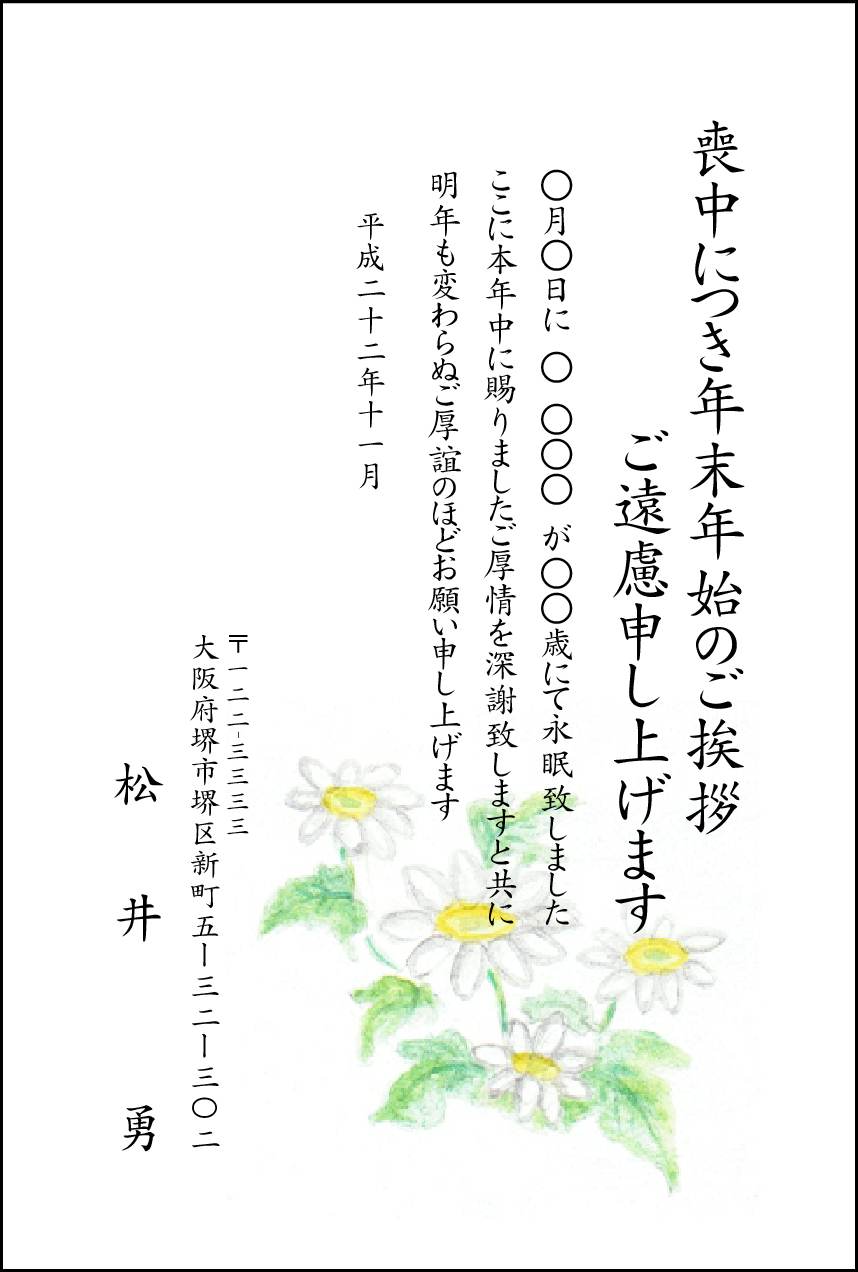 喪中につき年末年始のご挨拶
ご遠慮申し上げます
〇月〇日に 〇 〇〇〇 が〇〇歳にて永眠致しました
ここに本年中に賜りましたご厚情を深謝致しますと共に
明年も変わらぬご厚誼のほどお願い申し上げます
平成二十二年十一月
〒一二二-三三三三
大阪府堺市堺区新町五ー三二ー三〇二
松井 勇